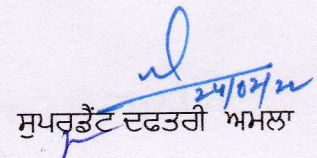 24/02/22
ਸੁਪਰਡੈਂਟ ਦਫਤਰੀ ਅਮਲਾ